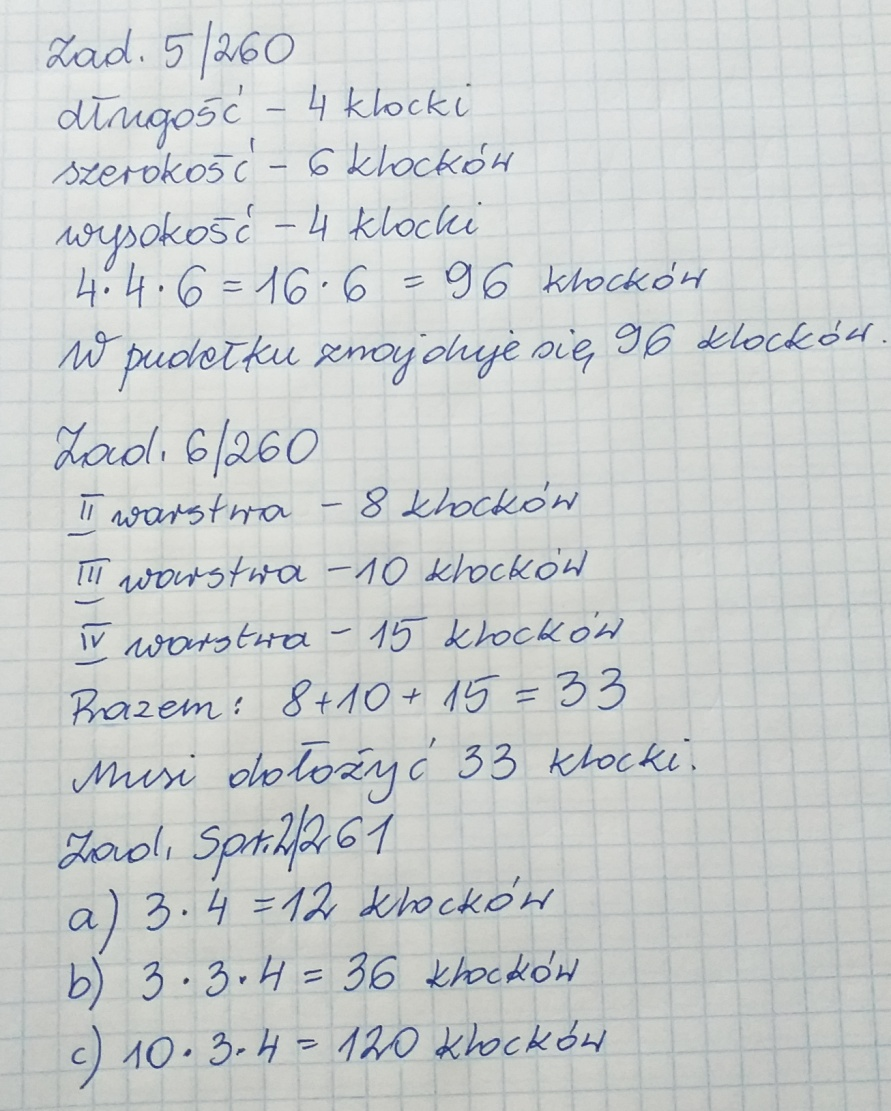 Zad. 5/260
długość - 4 klocki
szerokość - 6 klocków
wysokość - 4 klocki
4·4·6 = 16·6 = 96 klocków
W pudełku znajduje się 96 klocków.
Zad. 6/260
II warstwa - 8 klocków
III warstwa - 10 klocków
IV warstwa - 15 klocków
Razem: 8+10+15 = 33
Musi dołożyć 33 klocki.
Zad. Spr.2/261
a) 3·4 = 12 klocków
b) 3·3·4 = 36 klocków
c) 10·3·4 = 120 klocków